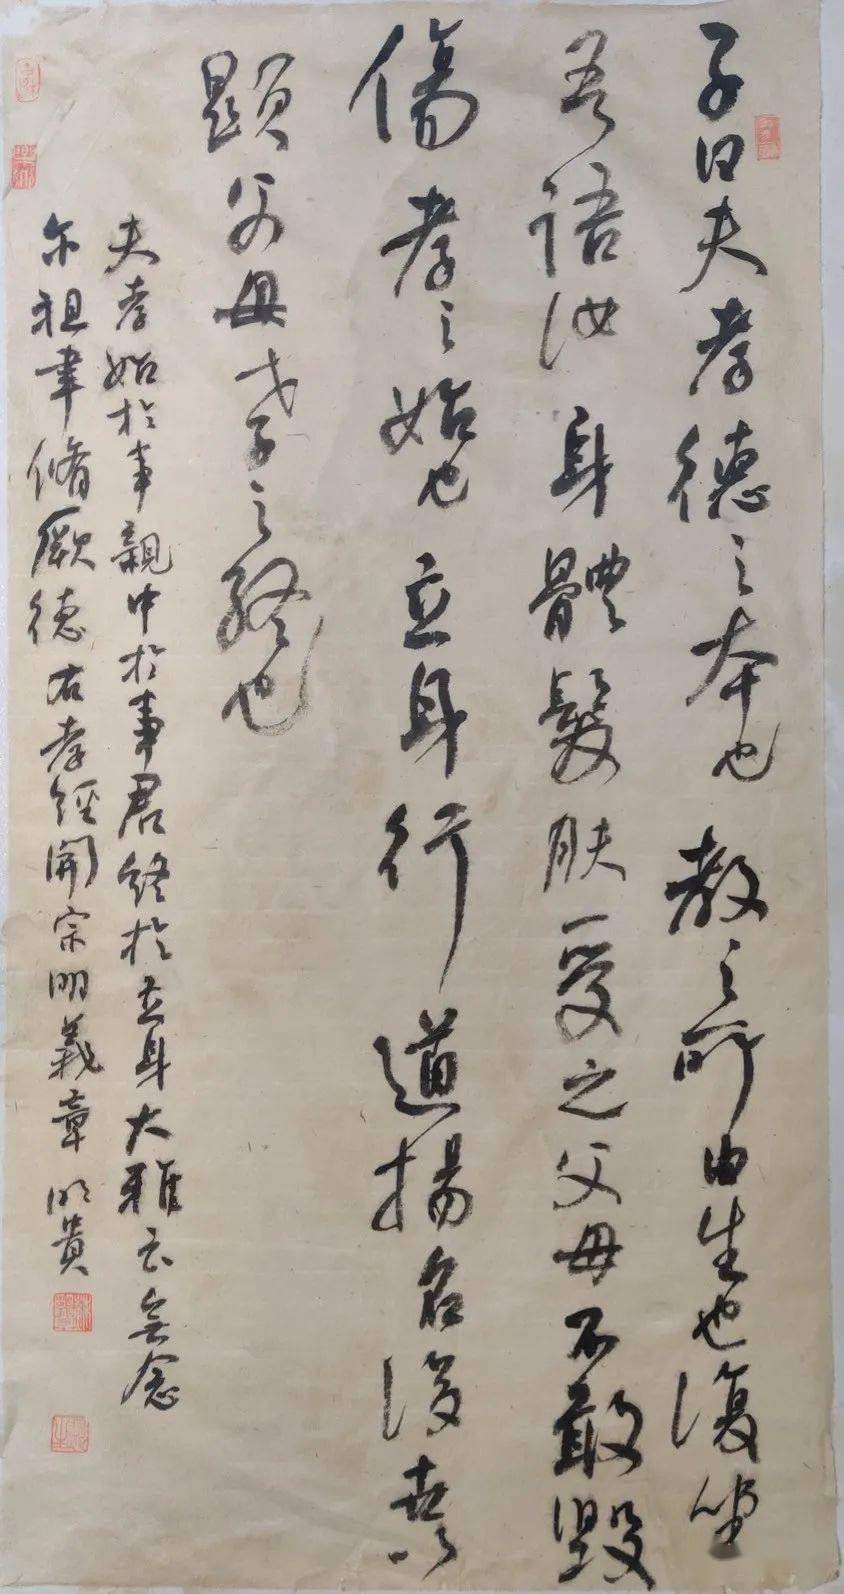 子曰夫孝德之本也教之所由生也復坐
吾語汝身體髮膚受之父母不敢毀
傷孝之始也立身行道揚名後世以
顯父母孝之終也
夫孝始於事親中於事君終於立身大雅云無念
尔祖聿脩厥德右孝經開宗明義章明貴